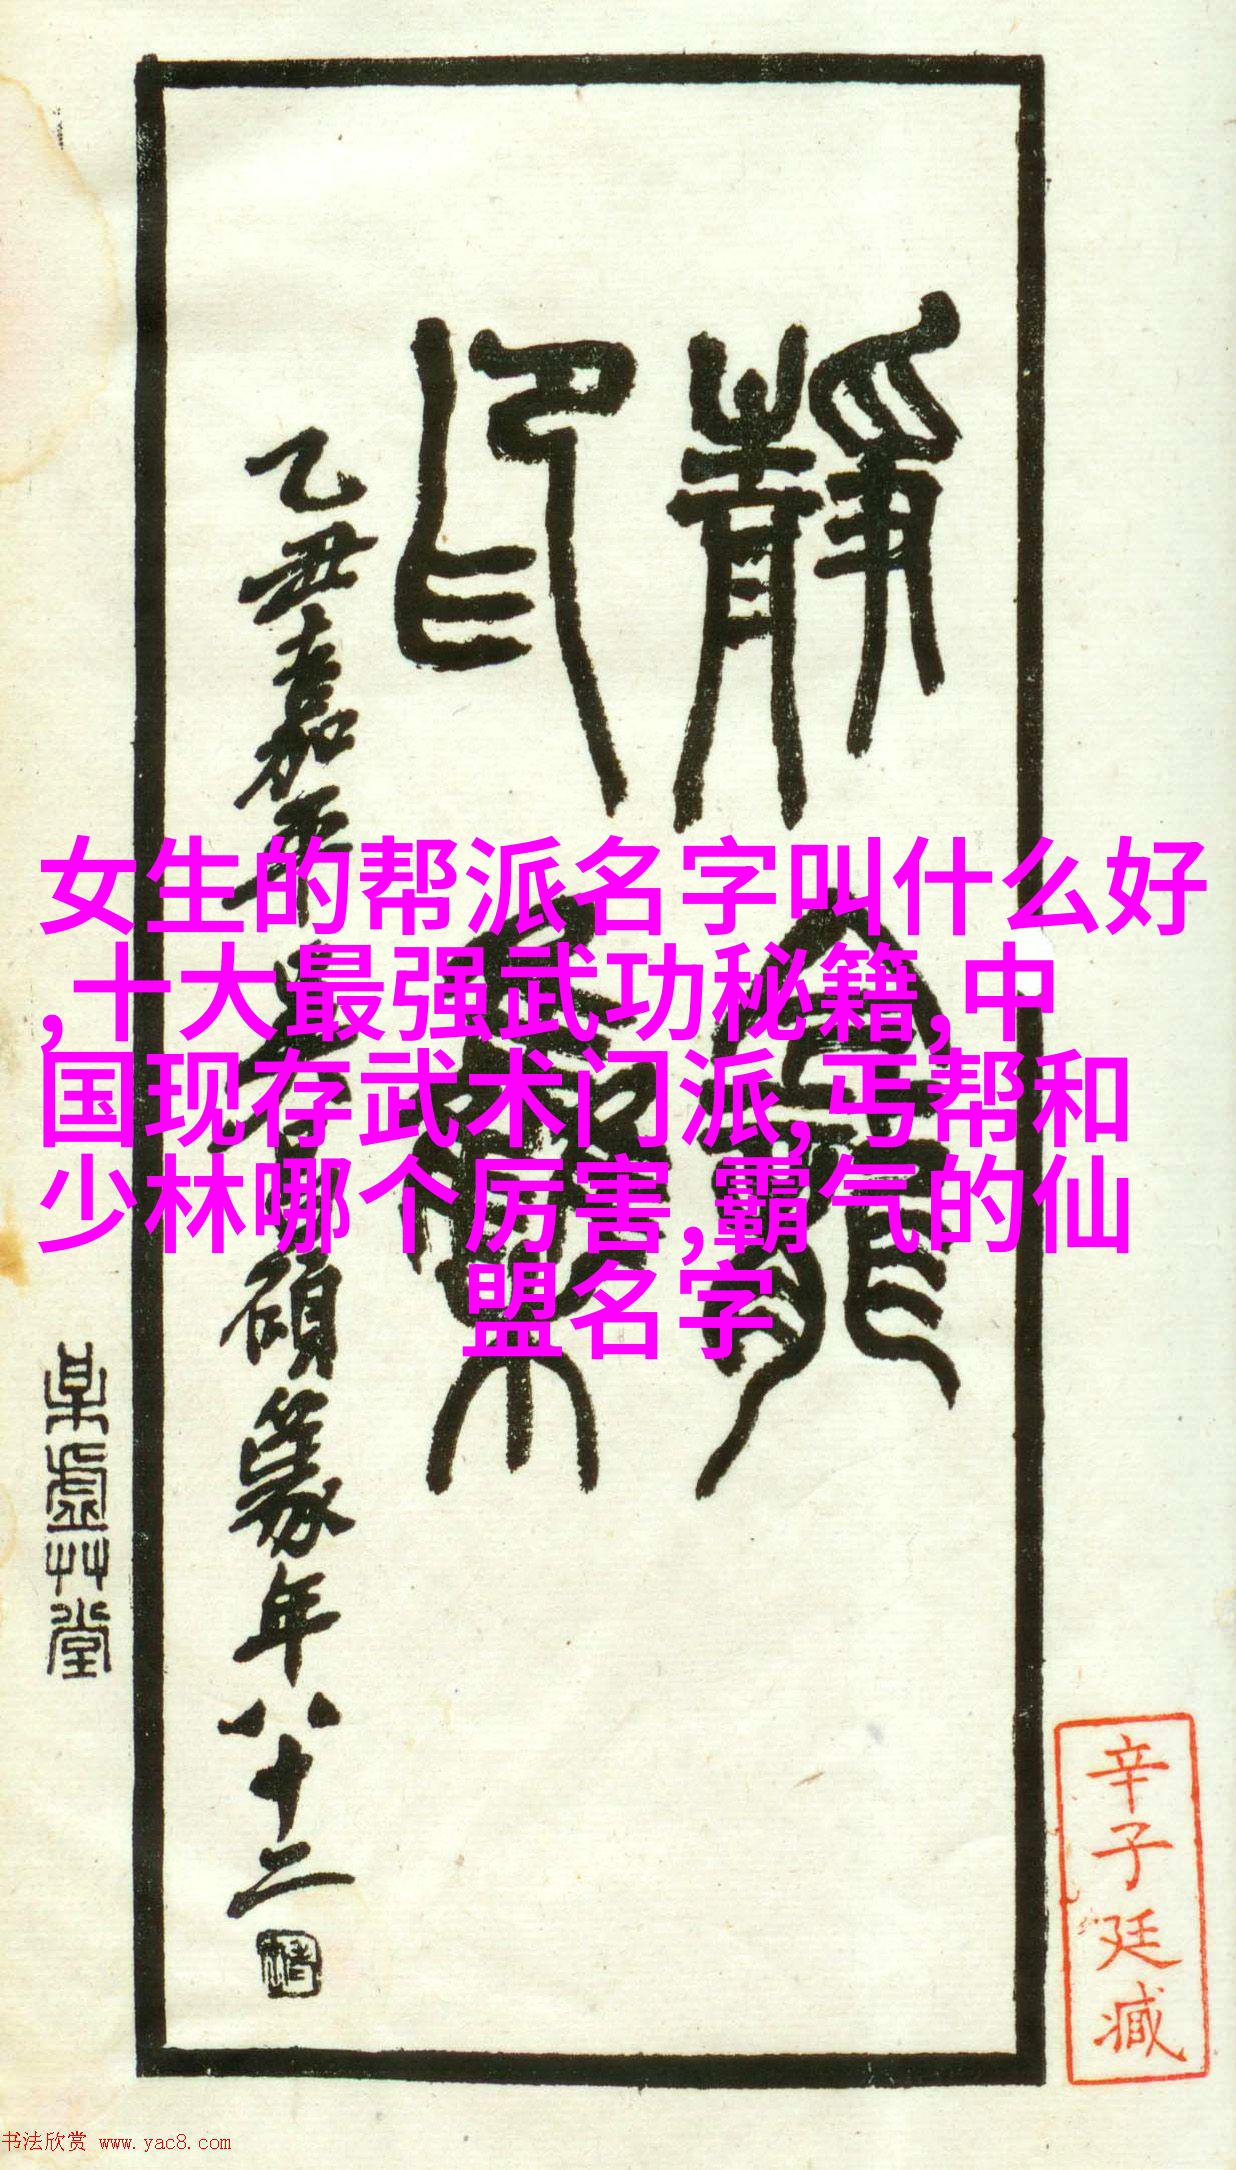 女生的帮派名字叫什么好
,十大最强武功秘籍,中
国现存武术门派,丐帮和
少林哪个厉害,霸气的仙
盟名字
静龛
印
乙丑嘉平
硕篆年八十二
某虚艸堂
辛子廷臧
书法欣赏 www.yac8.com